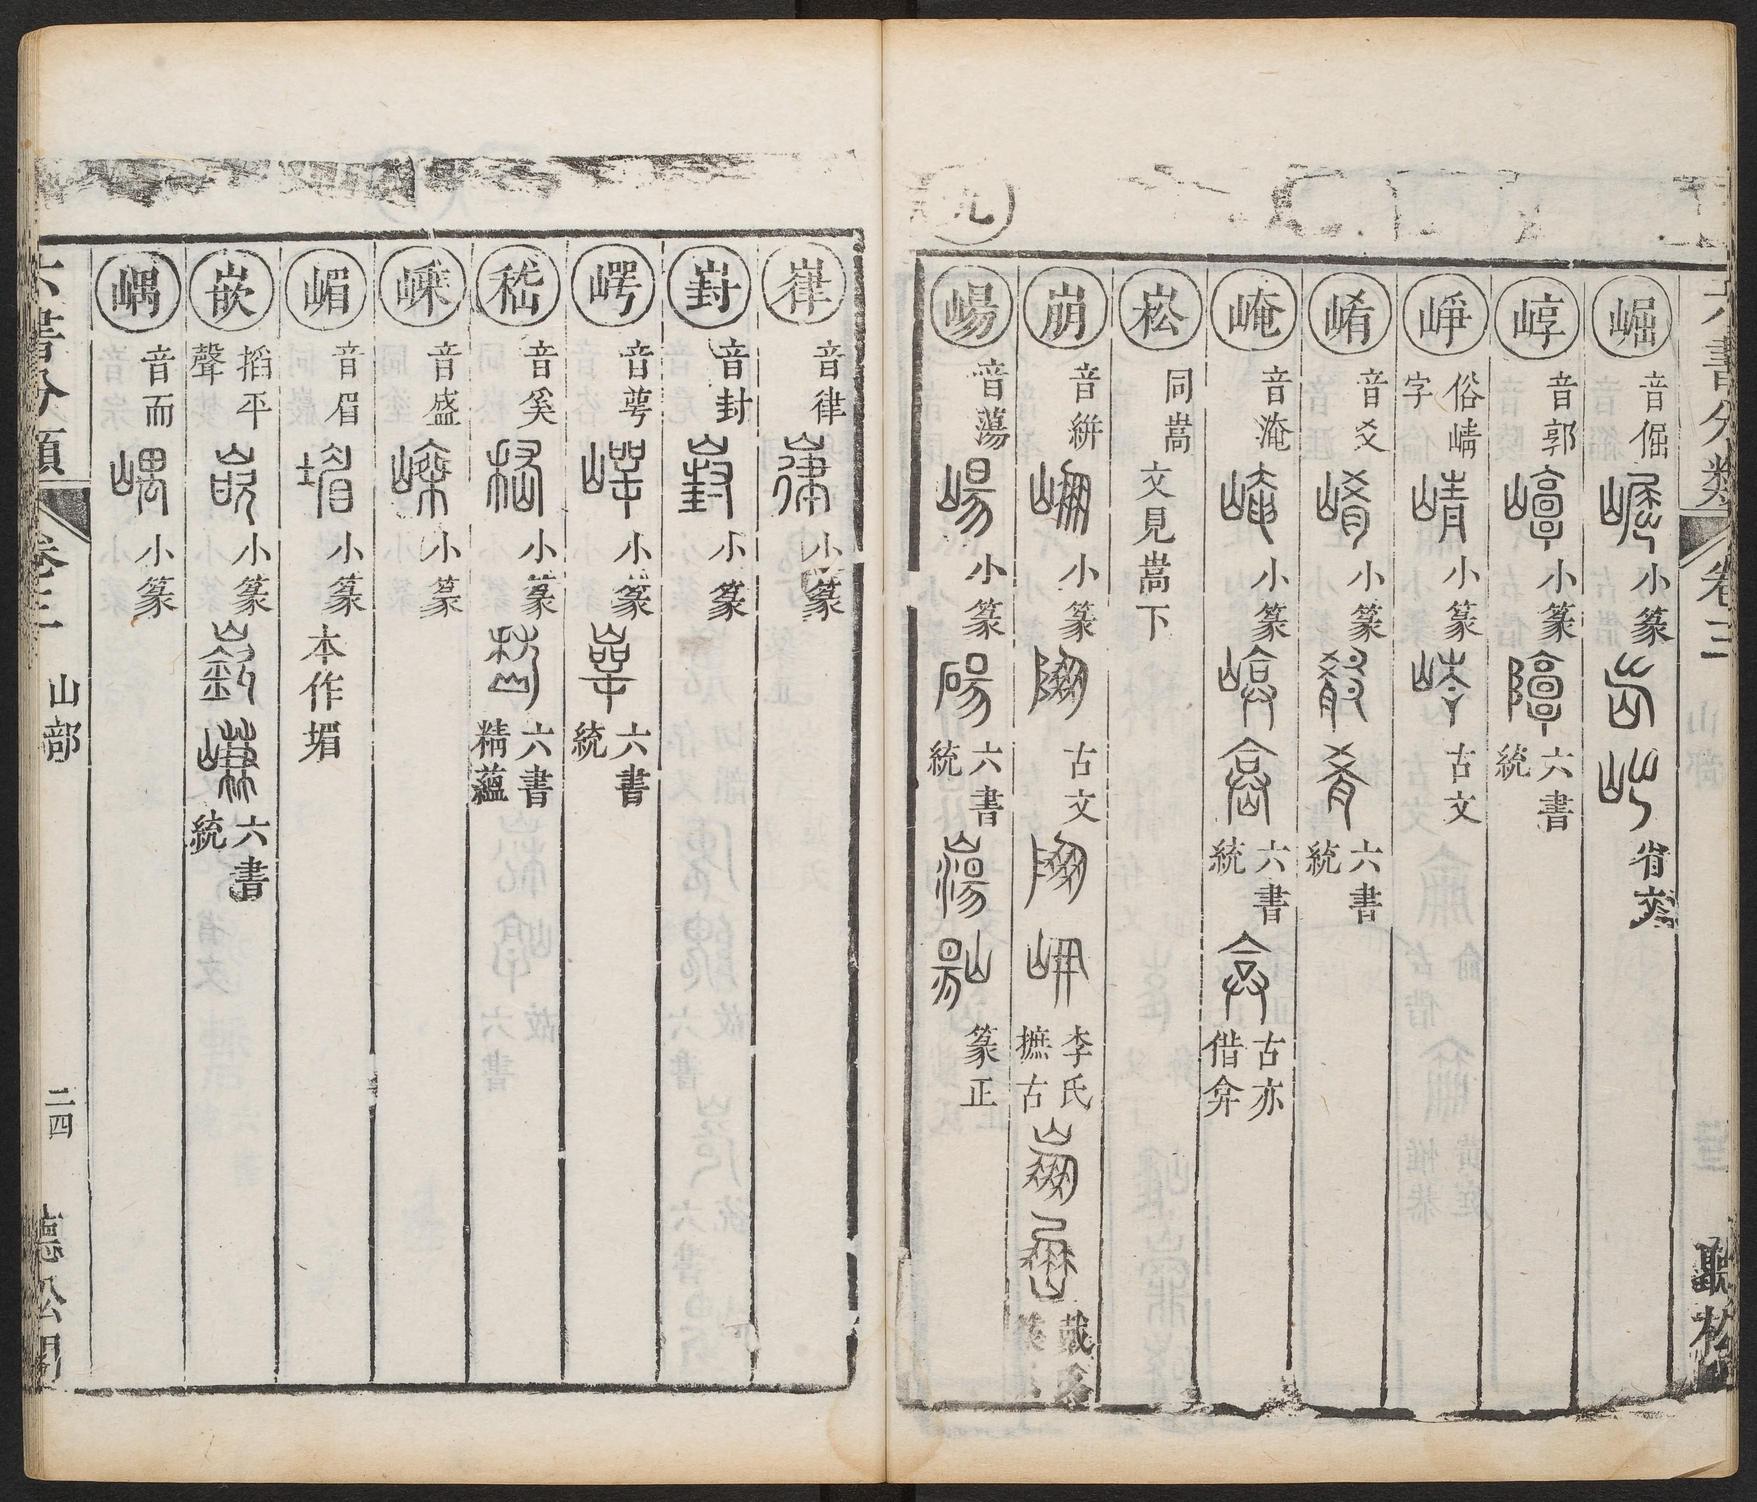 六書分類 卷三
崛 音倔 小篆 省文
崞 音郭 小篆 六書統
崢 俗崝字 小篆 古文
崤 音爻 小篆 六書統
崦 音淹 小篆 六書統 古亦借弇
崧 同嵩 文見嵩下
崩 音絣 小篆 古文 李氏摭古
崵 音蕩 小篆 六書統 篆正
九
嵂 音律 小篆
崶 音封 小篆
崿 音萼 小篆 六書統
嵇 音奚 小篆 六書精蘊
嵊 音盛 小篆
嵋 音眉 小篆 本作堳
嵌 搯平聲 小篆 六書統
嵎 音而 小篆
六書分類 卷三 山部 二四